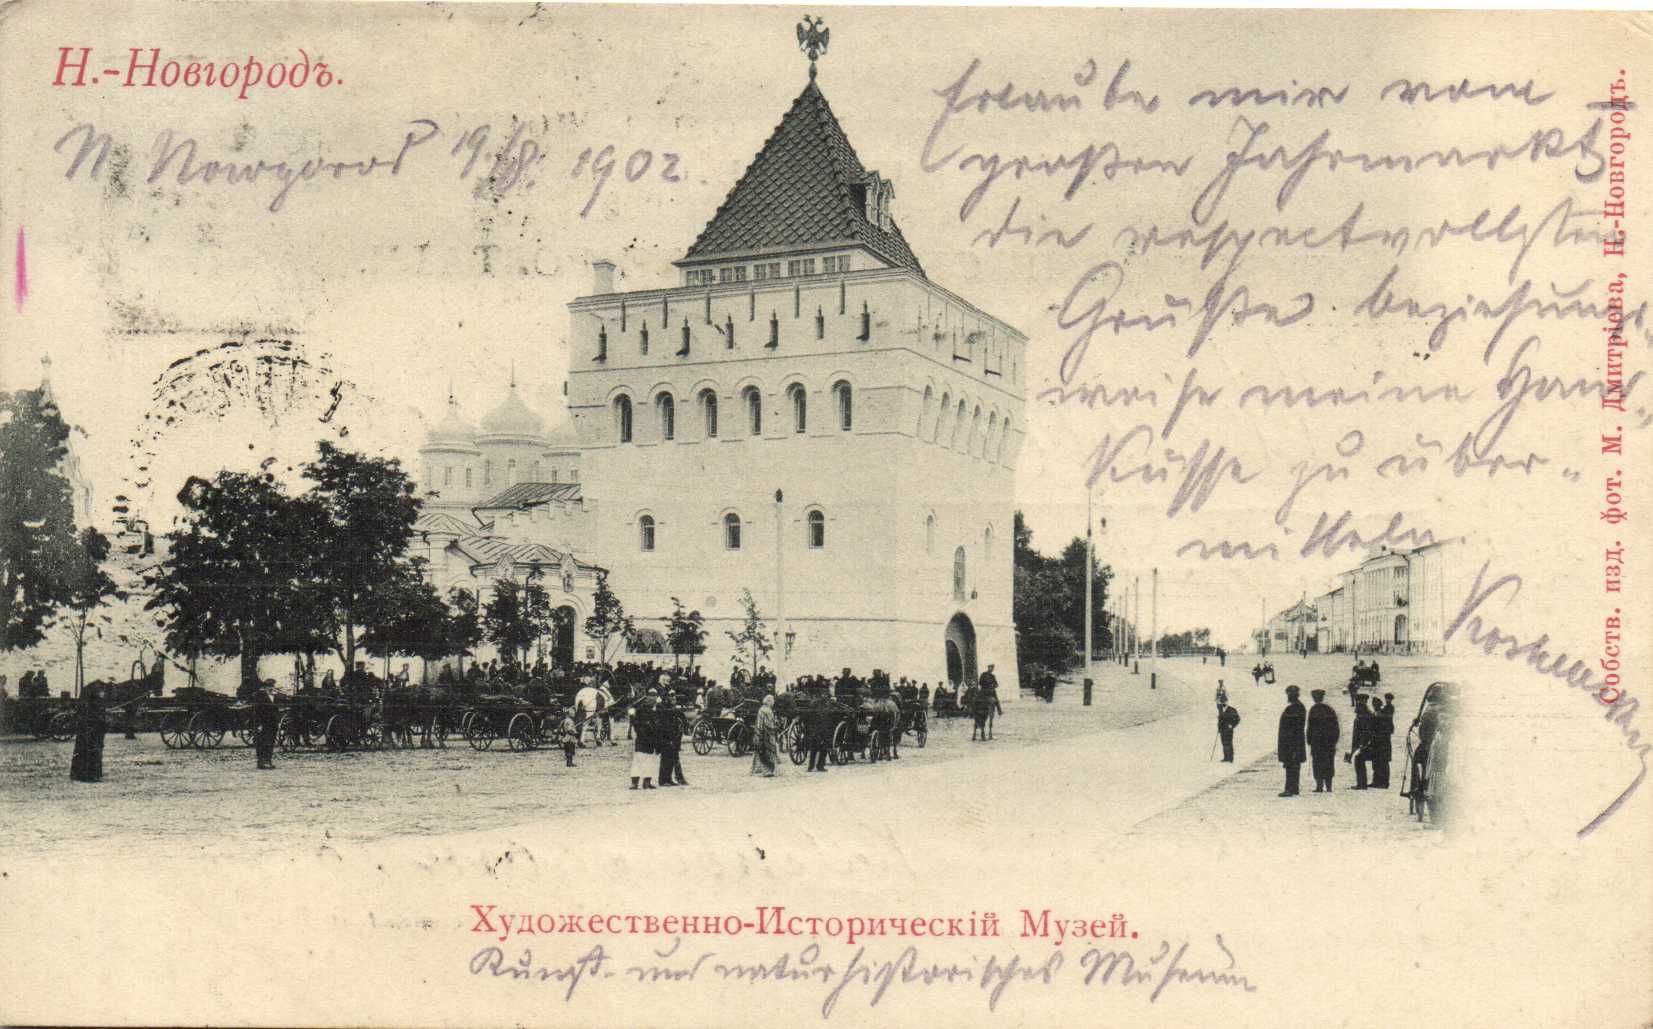 Н.-Новгородъ.
N Nowgorod 19./8. 1902.
Erlaube mir vom
großen Jahrmarkt
die respectvollsten
Grüße beziehungs-
weise meine Hand-
Küsse zu über-
mitteln.
Собств. изд. фот. М. Дмитріева, Н.-Новгородъ.
Художественно-Историческій Музей.
Kunst- und naturhistorisches Museum